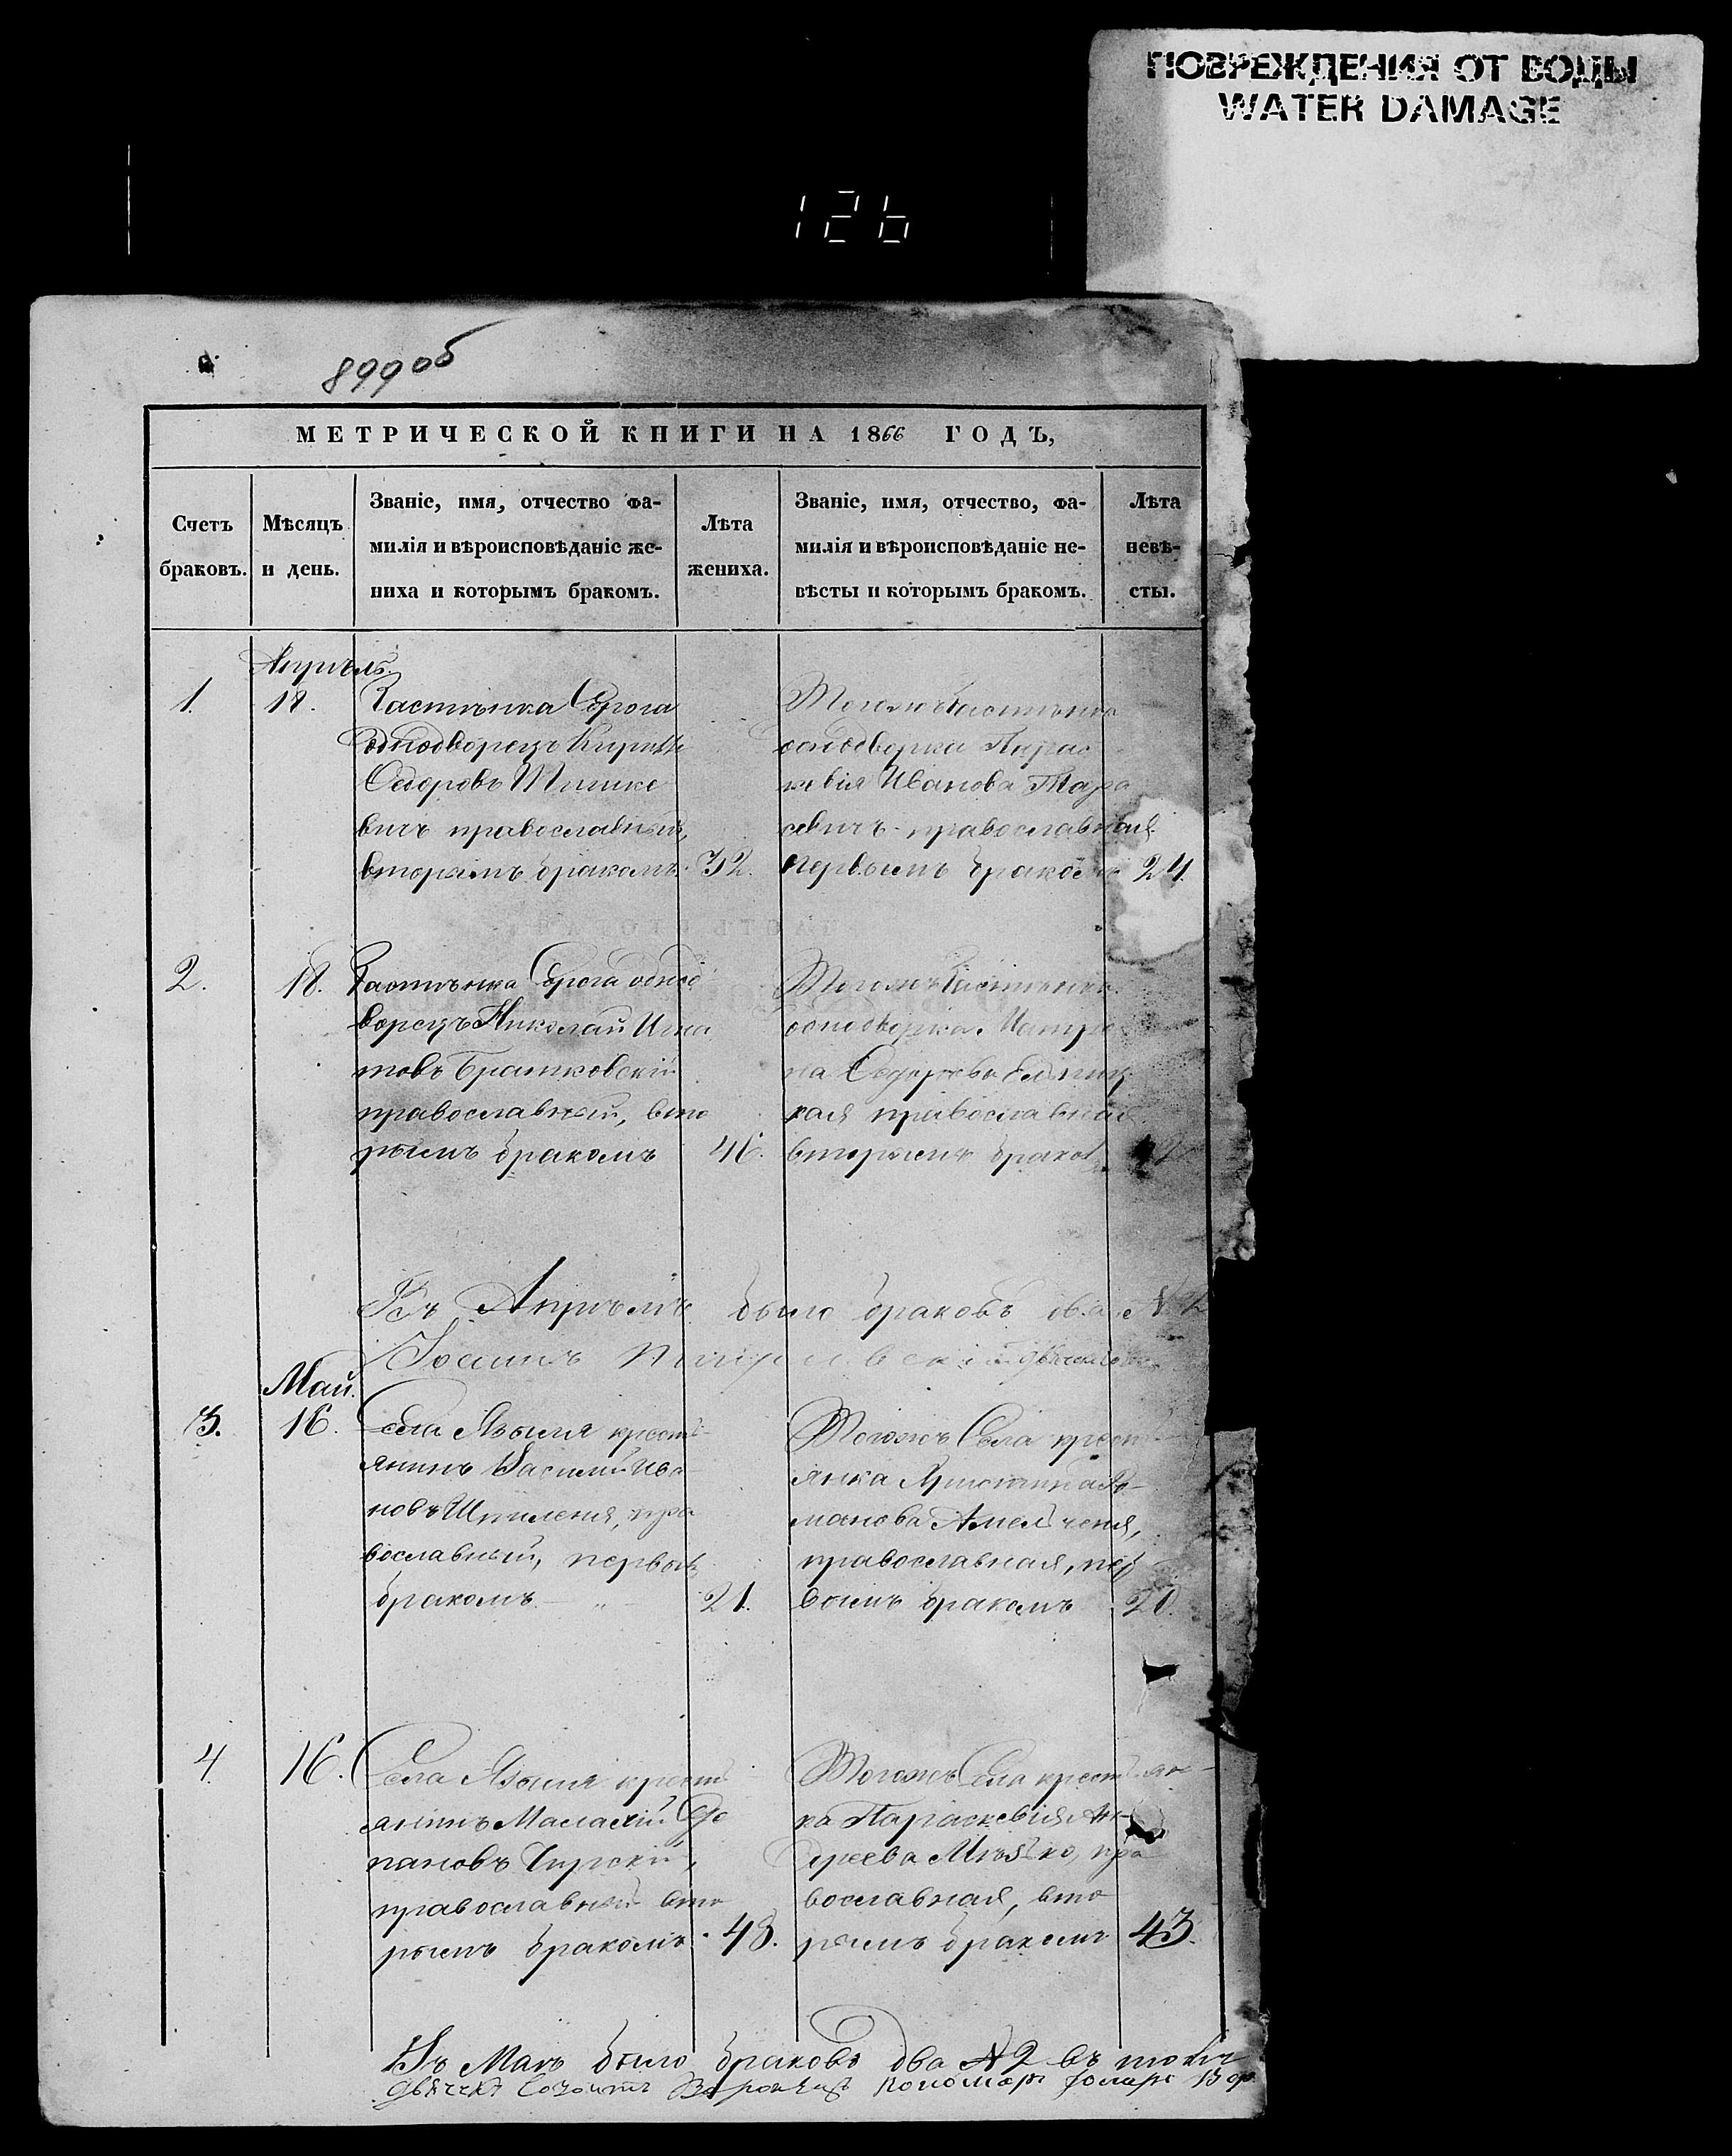 ПОВРЕЖДЕНИЯ ОТ ВОДЫ
WATER DAMAGE
126
899об
МЕТРИЧЕСКОЙ КНИГИ НА 1866 ГОДЪ,
Счетъ браковъ.
Мѣсяцъ и день.
Званіе, имя, отчество фа-
милія и вѣроисповѣданіе же-
ниха и которымъ бракомъ.
Лѣта жениха.
Званіе, имя, отчество, фа-
милія и вѣроисповѣданіе не-
вѣсты и которымъ бракомъ.
Лѣта
невѣ-
сты.
Апрѣль.
1.
18.
Застѣнка
однодворецъ
Ѳедоровъ Тишке
вичъ православный,
вторымъ бракомъ.
32.
Тогожъ Застѣнка
однодворка Парас
кевія Иванова Тара
севичъ православная
первымъ бракомъ
24.
2.
18.
Застѣнка одно
ворецъ Николай Игна
товъ Братковскій
православный, вто
рымъ бракомъ
46.
Тогожъ Застѣнка
однодворка Матре
на
кая православная
вторымъ брако
Въ Апрѣлѣ было браковъ два № 2
Май.
3.
16.
Села Языля крестъ-
янинъ Василій Ива-
новъ Шпиленя, пра
вославный, первымъ
бракомъ
21.
Тогожъ Села крест
янка Христина Ро-
манова Амельченя,
православная, пер
вымъ бракомъ
20.
4.
16.
Села Языля крест
янинъ Малахій Сте
пановъ Чирскій,
православный вто
рымъ бракомъ
48.
Тогожъ Села крестьян-
ка Параскевія Ан-
дреева пра
вославная, вто
рымъ бракомъ
43.
Въ Маѣ было браковъ два № 2 въ
Дьячекъ Созонтъ Пономарь